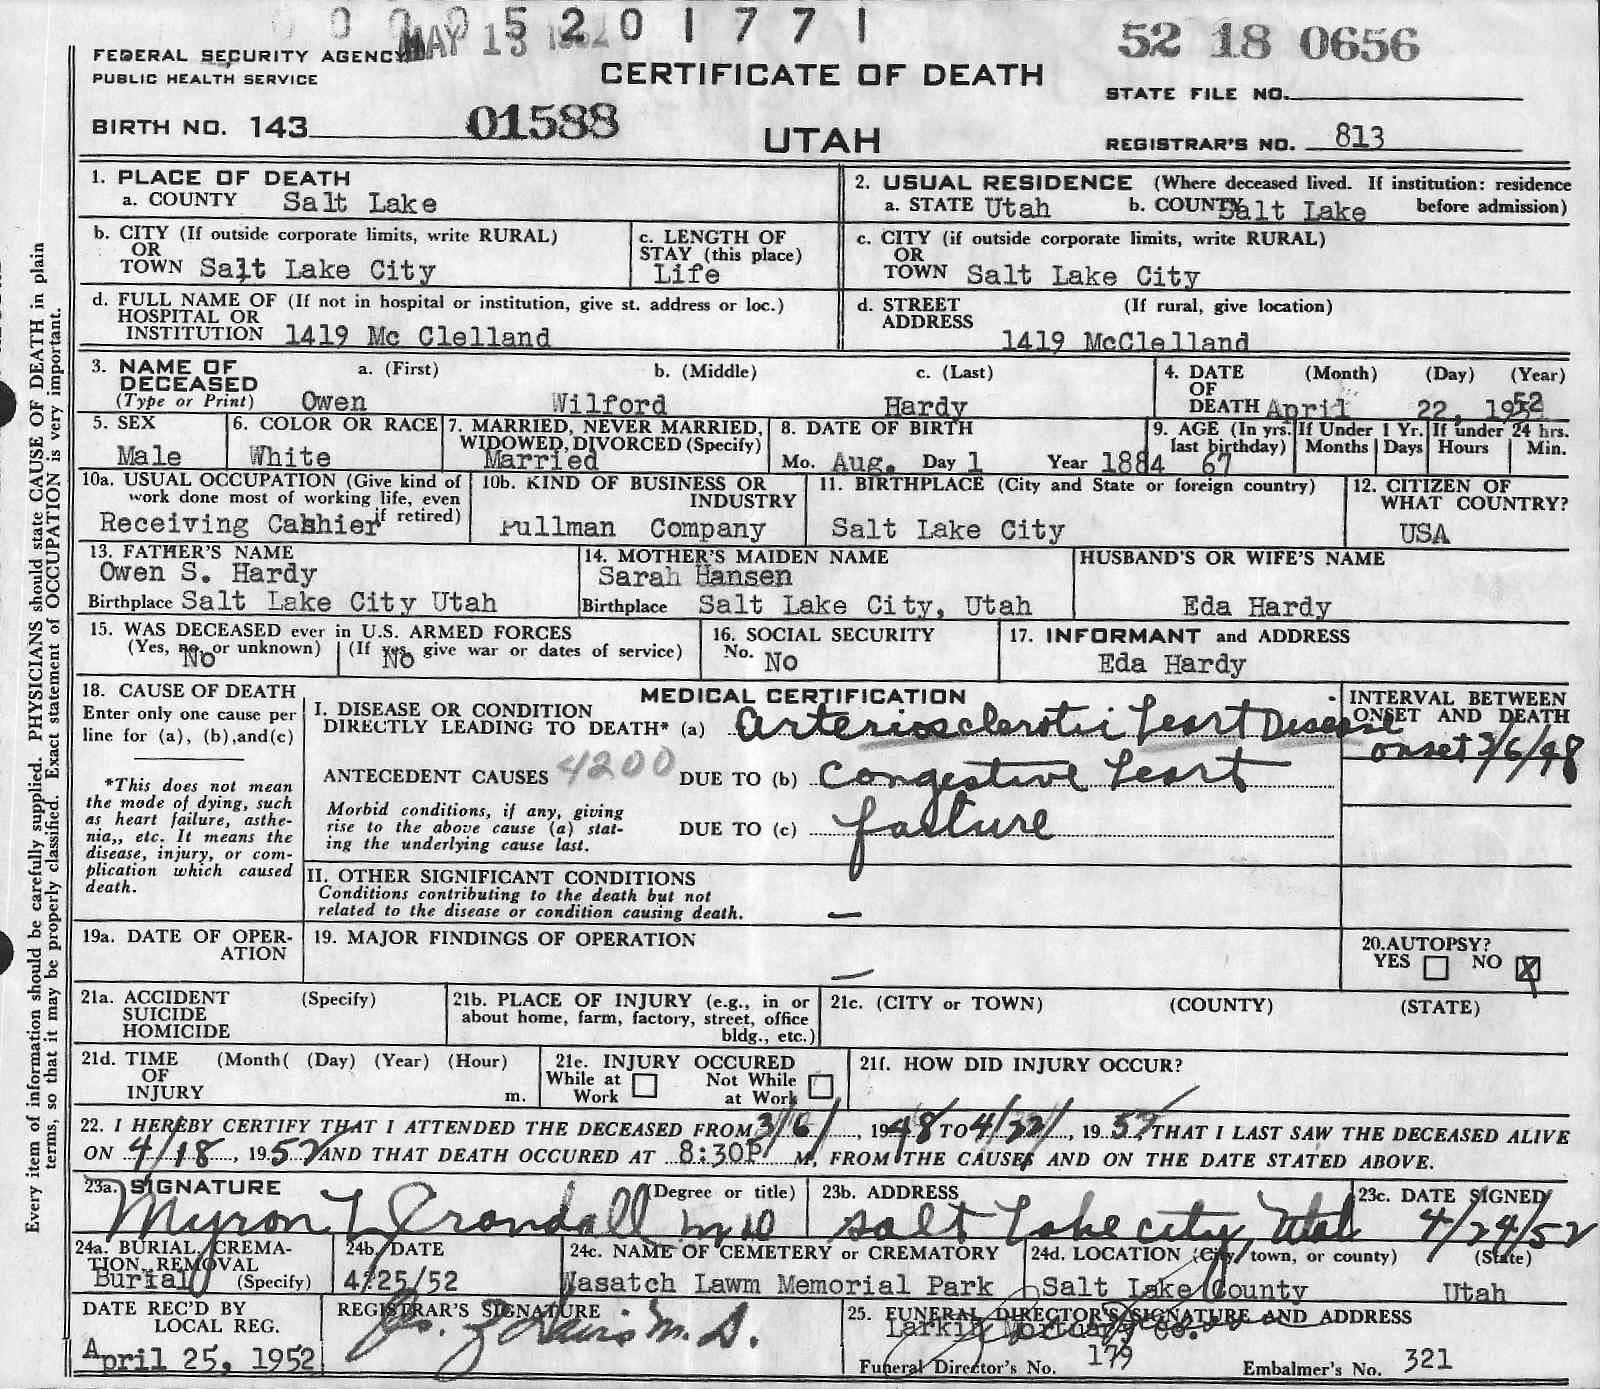 0 0 0 5 2 0 1 7 7 1
MAY 13 1952
52 18 0656
FEDERAL SECURITY AGENCY
PUBLIC HEALTH SERVICE
CERTIFICATE OF DEATH
STATE FILE NO.
BIRTH NO. 143 01588
UTAH
REGISTRAR'S NO. 813
1. PLACE OF DEATH
a. COUNTY Salt Lake
2. USUAL RESIDENCE (Where deceased lived. If institution: residence before admission)
a. STATE Utah b. COUNTY Salt Lake
b. CITY (If outside corporate limits, write RURAL)
OR
TOWN Salt Lake City
c. LENGTH OF
STAY (this place)
Life
c. CITY (if outside corporate limits, write RURAL)
OR
TOWN Salt Lake City
d. FULL NAME OF (If not in hospital or institution, give st. address or loc.)
HOSPITAL OR
INSTITUTION 1419 Mc Clelland
d. STREET (If rural, give location)
ADDRESS
1419 McClelland
3. NAME OF a. (First) b. (Middle) c. (Last)
DECEASED
(Type or Print) Owen Wilford Hardy
4. DATE (Month) (Day) (Year)
OF
DEATH April 22, 1952
5. SEX
Male
6. COLOR OR RACE
White
7. MARRIED, NEVER MARRIED,
WIDOWED, DIVORCED (Specify)
Married
8. DATE OF BIRTH
Mo. Aug. Day 1 Year 1884
9. AGE (In yrs. last birthday) 67
If Under 1 Yr.
Months Days
If under 24 hrs.
Hours Min.
10a. USUAL OCCUPATION (Give kind of
work done most of working life, even
if retired)
Receiving Cashier
10b. KIND OF BUSINESS OR
INDUSTRY
Pullman Company
11. BIRTHPLACE (City and State or foreign country)
Salt Lake City
12. CITIZEN OF
WHAT COUNTRY?
USA
13. FATHER'S NAME
Owen S. Hardy
Birthplace Salt Lake City Utah
14. MOTHER'S MAIDEN NAME
Sarah Hansen
Birthplace Salt Lake City, Utah
HUSBAND'S OR WIFE'S NAME
Eda Hardy
15. WAS DECEASED ever in U.S. ARMED FORCES
(Yes, no, or unknown) (If yes, give war or dates of service)
No No
16. SOCIAL SECURITY
No. No
17. INFORMANT and ADDRESS
Eda Hardy
18. CAUSE OF DEATH
Enter only one cause per
line for (a), (b),and(c)
*This does not mean
the mode of dying, such
as heart failure, asthe-
nia,, etc. It means the
disease, injury, or com-
plication which caused
death.
MEDICAL CERTIFICATION
I. DISEASE OR CONDITION
DIRECTLY LEADING TO DEATH* (a) Arteriosclerotic Heart Disease
ANTECEDENT CAUSES 4200 DUE TO (b) Congestive Heart
Morbid conditions, if any, giving
rise to the above cause (a) stat-
ing the underlying cause last.
DUE TO (c) failure
INTERVAL BETWEEN
ONSET AND DEATH
onset 3/6/48
II. OTHER SIGNIFICANT CONDITIONS
Conditions contributing to the death but not
related to the disease or condition causing death. —
19a. DATE OF OPER-
ATION
19. MAJOR FINDINGS OF OPERATION
—
20. AUTOPSY?
YES NO X
21a. ACCIDENT (Specify)
SUICIDE
HOMICIDE
21b. PLACE OF INJURY (e.g., in or
about home, farm, factory, street, office
bldg., etc.)
21c. (CITY or TOWN) (COUNTY) (STATE)
21d. TIME (Month( (Day) (Year) (Hour)
OF
INJURY m.
21e. INJURY OCCURED
While at Work Not While at Work
21f. HOW DID INJURY OCCUR?
22. I HEREBY CERTIFY THAT I ATTENDED THE DECEASED FROM 3/6/, 1948 TO 4/22/, 1952 THAT I LAST SAW THE DECEASED ALIVE
ON 4/18, 1952 AND THAT DEATH OCCURED AT 8:30P M, FROM THE CAUSES AND ON THE DATE STATED ABOVE.
23a. SIGNATURE (Degree or title)
Myron L Crandall M D
23b. ADDRESS
Salt Lake City, Utah
23c. DATE SIGNED
4/24/52
24a. BURIAL, CREMA-
TION, REMOVAL
Burial (Specify)
24b. DATE
4/25/52
24c. NAME OF CEMETERY or CREMATORY
Wasatch Lawm Memorial Park
24d. LOCATION (City, town, or county) (State)
Salt Lake County Utah
DATE REC'D BY
LOCAL REG.
April 25, 1952
REGISTRAR'S SIGNATURE
M. D.
25. FUNERAL DIRECTOR'S SIGNATURE AND ADDRESS
Larkin Mortuary Co.
Funeral Director's No. 179 Embalmer's No. 321
Every item of information should be carefully supplied. PHYSICIANS should state CAUSE OF DEATH in plain
terms, so that it may be properly classified. Exact statement of OCCUPATION is very important.